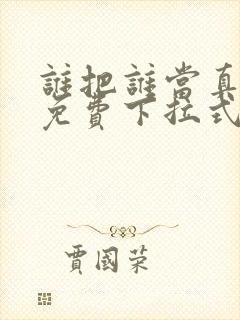 誰把誰當真
免費下拉式
賈國榮